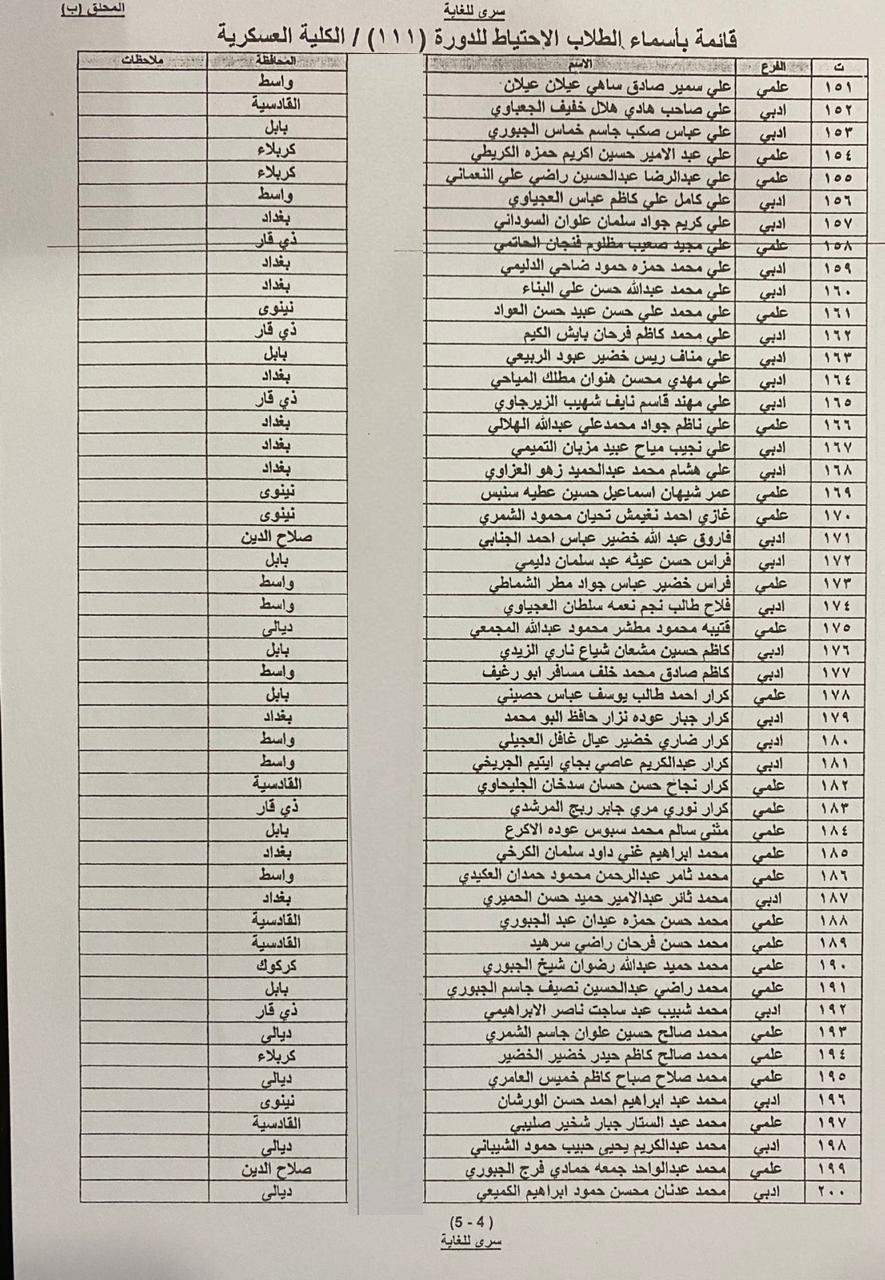 سري للغاية
المحلق (ب)
قائمة بأسماء الطلاب الإحتياط للدورة (١١١) / الكلية العسكرية
ت الفرع الاسم المحافظة ملاحظات
١٥١ علمي علي سمير صادق ساهي عيلان عيلان واسط
١٥٢ ادبي علي صاحب هادي هلال خفيف الجعباوي القادسية
١٥٣ ادبي علي عباس صكب جاسم خماس الجبوري بابل
١٥٤ علمي علي عبد الامير حسين اكريم حمزه الكريطي كربلاء
١٥٥ علمي علي عبدالرضا عبدالحسين راضي علي النعماني كربلاء
١٥٦ ادبي علي كامل علي كاظم عباس العجياوي واسط
١٥٧ ادبي علي كريم جواد سلمان علوان السوداني بغداد
١٥٨ علمي علي مجيد صعيب مظلوم فنجان الحاتمي ذي قار
١٥٩ ادبي علي محمد حمزه حمود ضاحي الدليمي بغداد
١٦٠ ادبي علي محمد عبدالله حسن علي البناء بغداد
١٦١ علمي علي محمد علي حسن عبيد حسن العواد نينوى
١٦٢ ادبي علي محمد كاظم فرحان بايش الكيم ذي قار
١٦٣ ادبي علي مناف ريس خضير عبود الربيعي بابل
١٦٤ ادبي علي مهدي محسن هنوان مطلك المياحي بغداد
١٦٥ ادبي علي مهند قاسم نايف شهيب الزيرجاوي ذي قار
١٦٦ علمي علي ناظم جواد محمدعلي عبدالله الهلالي بغداد
١٦٧ ادبي علي نجيب مياح عبيد مزبان التميمي بغداد
١٦٨ ادبي علي هشام محمد عبدالحميد زهو العزاوي بغداد
١٦٩ علمي عمر شيهان اسماعيل حسين عطيه سنبس نينوى
١٧٠ علمي غازي احمد نغيمش تحيان محمود الشمري نينوى
١٧١ ادبي فاروق عبد الله خضير عباس احمد الجنابي صلاح الدين
١٧٢ ادبي فراس حسن عيثه عبد سلمان دليمي بابل
١٧٣ علمي فراس خضير عباس جواد مطر الشماطي واسط
١٧٤ ادبي فلاح طالب نجم نعمه سلطان العجياوي واسط
١٧٥ علمي قتيبه محمود مطشر محمود عبدالله المجمعي ديالى
١٧٦ ادبي كاظم حسين مشعان شياع ناري الزيدي بابل
١٧٧ ادبي كاظم صادق محمد خلف مسافر ابو رغيف واسط
١٧٨ علمي كرار احمد طالب يوسف عباس حصيني بابل
١٧٩ ادبي كرار جبار عوده نزار حافظ البو محمد بغداد
١٨٠ ادبي كرار ضاري خضير عيال غافل العجيلي واسط
١٨١ ادبي كرار عبدالكريم عاصي بجاي ايتيم الجريخي واسط
١٨٢ علمي كرار نجاح حسن حسان سدخان الجليحاوي القادسية
١٨٣ علمي كرار نوري مري جابر ربح المرشدي ذي قار
١٨٤ علمي مثنى سالم محمد سبوس عوده الاكرع بابل
١٨٥ علمي محمد ابراهيم غني داود سلمان الكرخي بغداد
١٨٦ علمي محمد ثامر عبدالرحمن محمود حمدان العكيدي واسط
١٨٧ ادبي محمد ثائر عبدالامير حميد حسن الحميري بغداد
١٨٨ علمي محمد حسن حمزه عيدان عبد الجبوري القادسية
١٨٩ علمي محمد حسن فرحان راضي سرهيد القادسية
١٩٠ علمي محمد حميد عبدالله رضوان شيخ الجبوري كركوك
١٩١ علمي محمد راضي عبدالحسين نصيف جاسم الجبوري بابل
١٩٢ ادبي محمد شبيب عبد ساجت ناصر الابراهيمي ذي قار
١٩٣ علمي محمد صالح حسين علوان جاسم الشمري ديالى
١٩٤ علمي محمد صالح كاظم حيدر خضير الخضير كربلاء
١٩٥ علمي محمد صلاح صباح كاظم خميس العامري ديالى
١٩٦ ادبي محمد عبد ابراهيم احمد حسن الورشان نينوى
١٩٧ علمي محمد عبد الستار جبار شخير صليبي القادسية
١٩٨ ادبي محمد عبدالكريم يحيى حبيب حمود الشيباني ديالى
١٩٩ علمي محمد عبدالواحد جمعه حمادي فرج الجبوري صلاح الدين
٢٠٠ ادبي محمد عدنان محسن حمود ابراهيم الكميعي ديالى
(5 - 4)
سري للغاية